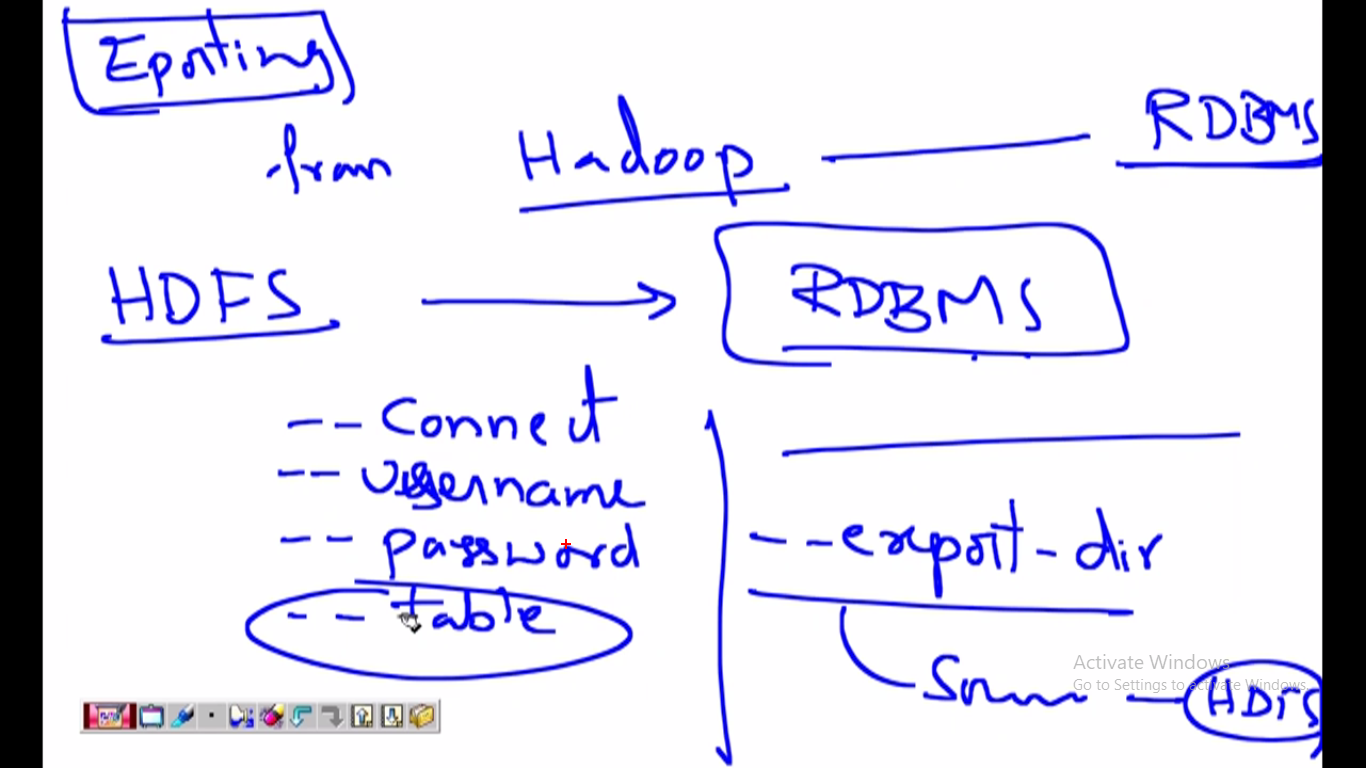 Eporting
from Hadoop RDBMS
HDFS RDBMS
-- Connect
-- Username
-- password
-- table
--export-dir
HDFS
Activate Windows
Go to Settings to activate Windows.